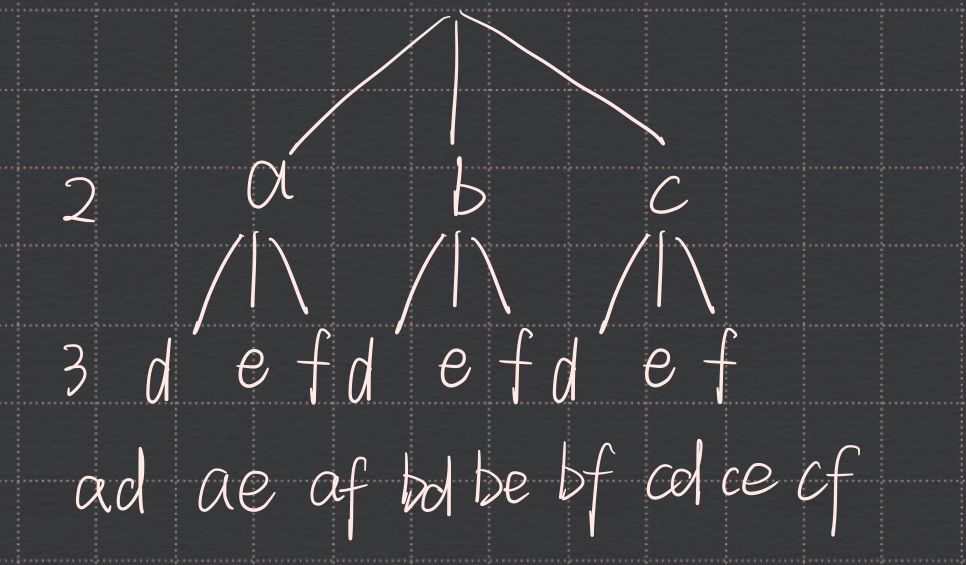 2 a b c
3 d e f d e f d e f
ad ae af bd be bf cd ce cf